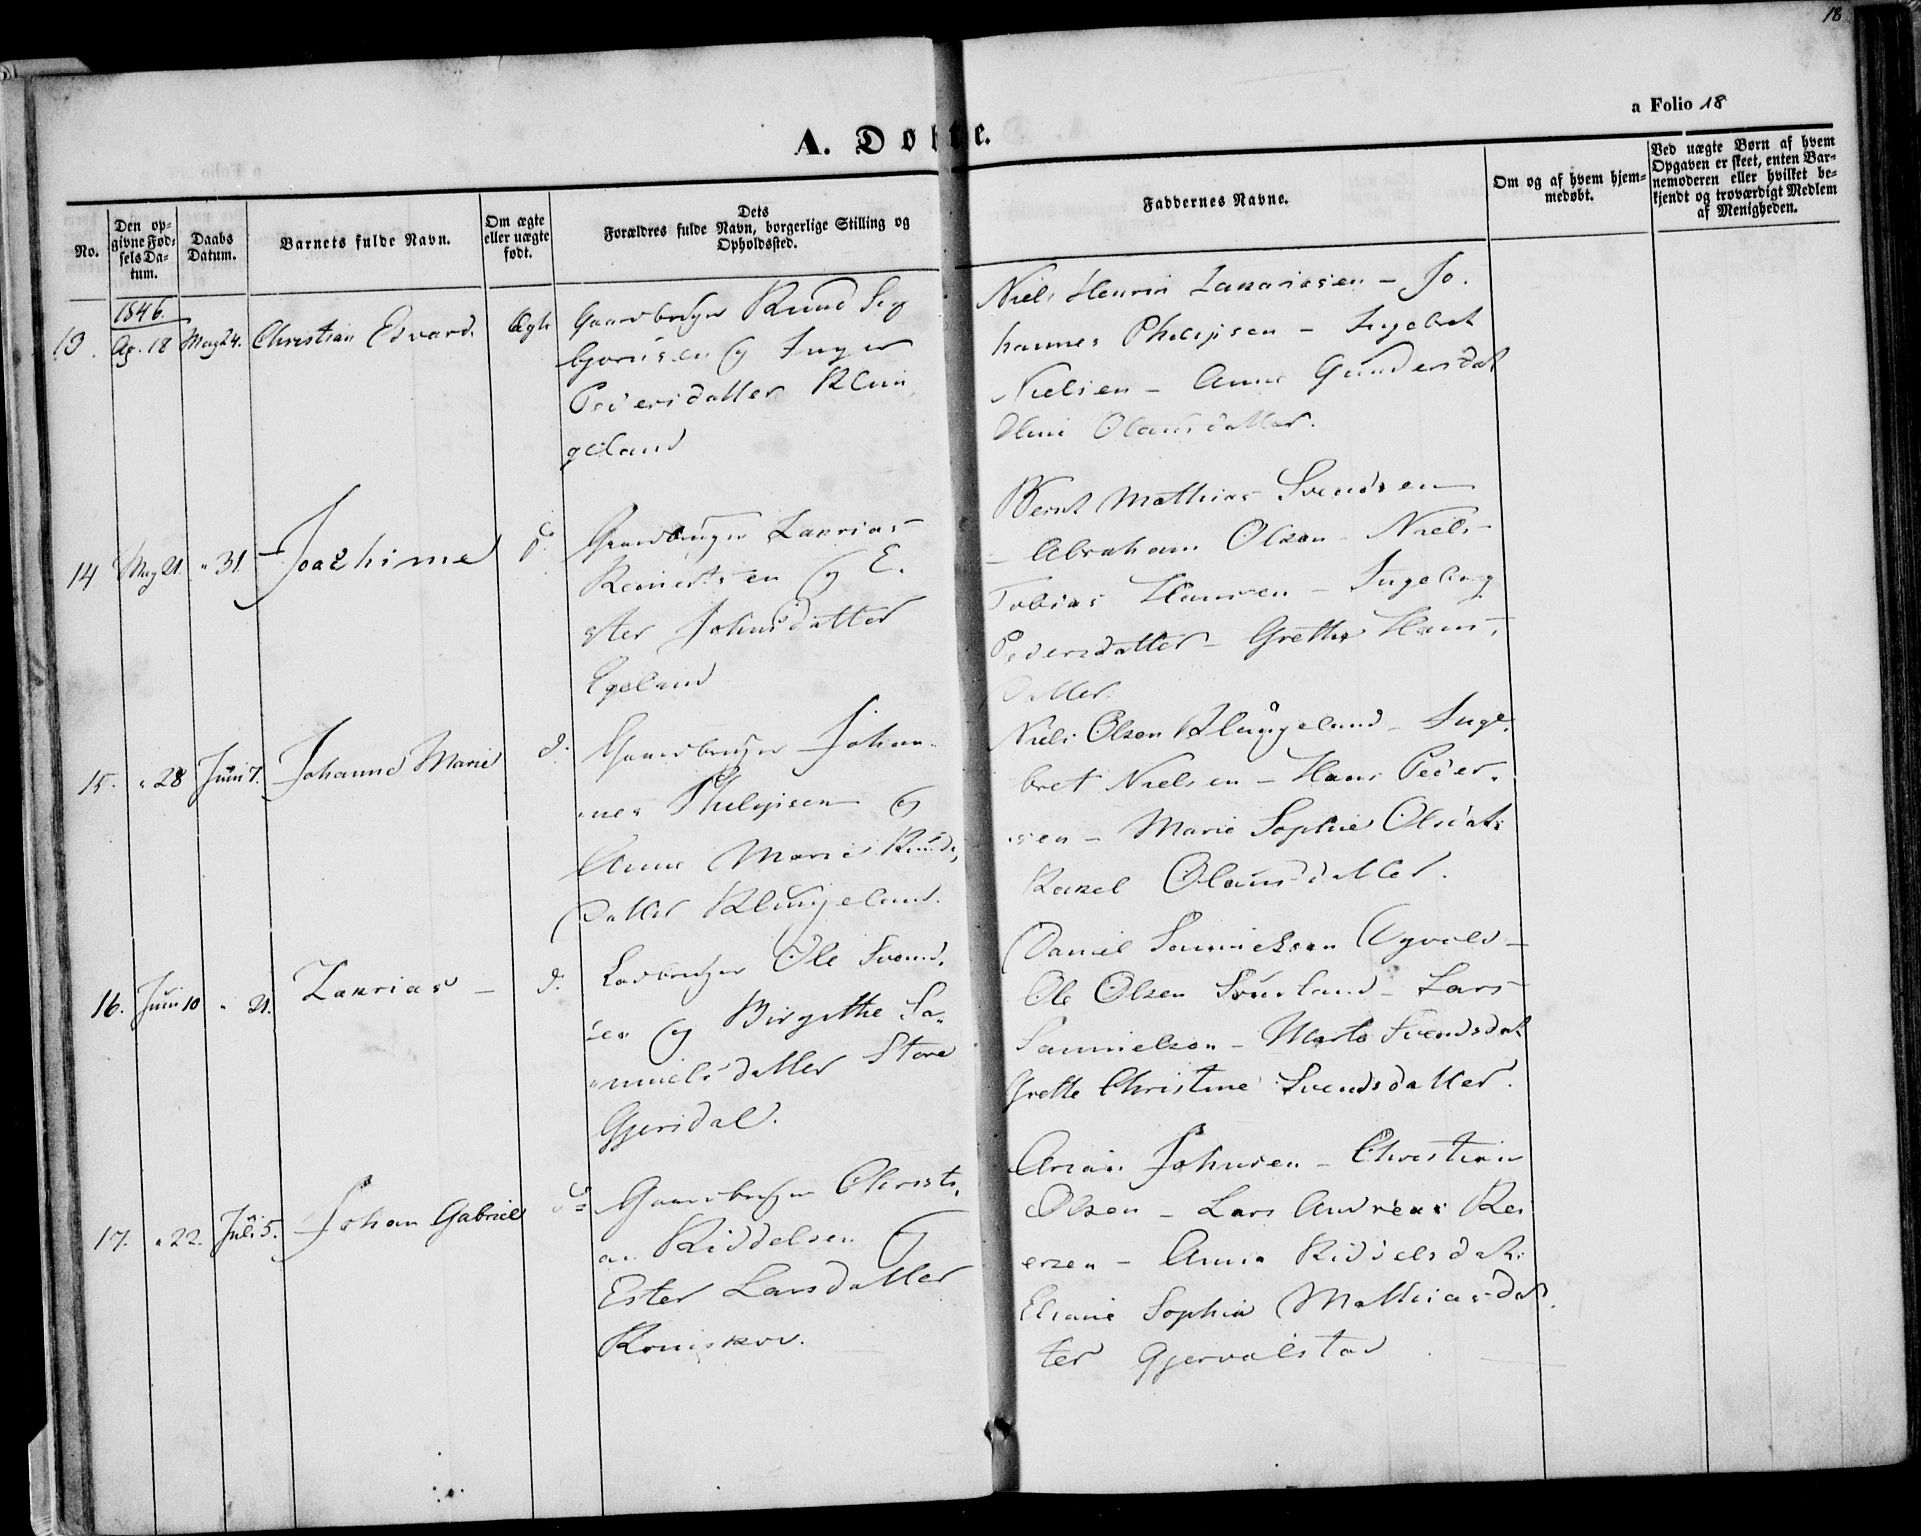 18
a Folio 18
A. Døbte.
No.
Den op-
givne Fød-
sels Da-
tum.
Daabs
Datum.
Barnets fulde Navn.
Om ægte
eller uægte
født.
Dets
Forældres fulde Navn, borgerlige Stilling og
Opholdssted.
Faddernes Navne.
Om og af hvem hjem-
medøbt.
Ved uægte Børn af hvem
Opgaven er skeet, enten Bar-
nemoderen eller hvilket be-
kjendt og troværdigt Medlem
af Menigheden.
1846.
13. Ap. 18 May 24. Christian Edvard. Ægte
Gaardbruger Knud Seg
bjørnsen og Inger
Pedersdatter Klun,
geland
Niels Henrik Zakariasen - Jo.
hannes Philipsen - Ingebret
Nielsen - Anne Gundersdat
Oline Olausdatter.
14 May 21. " 31. Joachime d.
Gaardbruger Zakrias
Reinertsen og E.
ster Johnsdatter
Egeland
Bernt Mathias Svendsen
- Abraham Olsen - Niels
Tobias Hansen - Ingeborg
Pedersdatter - Grethe Hans,
datter.
15. " 28 Juni 7. Johanne Marie d.
Gaardbruger Johan-
nes Philipsen og
Anne Marie Knuds,
datter Klungeland.
Niels Olsen Klungeland - Inge,
bret Nielsen - Hans Peder-
sen - Marie Sophie Olsdatr
Rakel Olausdatter.
16. Juni 10 " 21. Zakrias - d.
Ladbruger Ole Svend,
sen og Birgithe Sa-
muelsdatter Store
Gjersdal.
Daniel Samuelsen Øgvold -
Ole Olsen - Lars
Samuelsen - Marte Svendsdat
Grethe Christine Svendsdatter.
17. " 22. Juli 5. Johan Gabriel do
Gaardbruger Christi,
an Kiddelsen og
Ester Larsdatter
Kongskov.
Johnsen - Christian
Olsen - Lars Andreas Rei
ersen - Anna Kiddelsdatr
Sophia Mathiasdat.
ter Gjervolstad